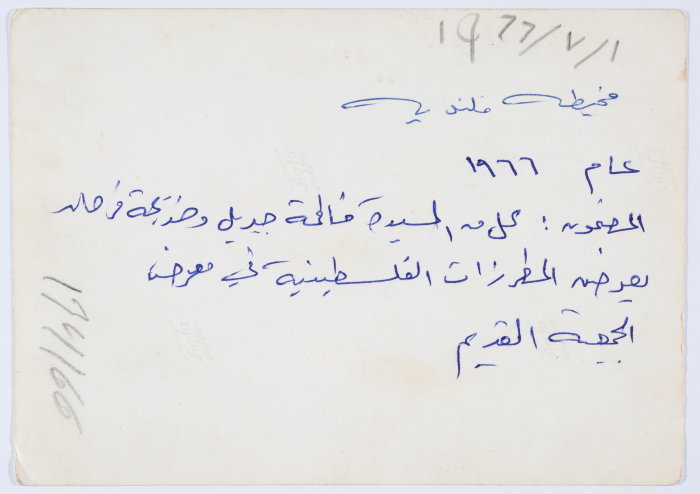 ١٩٦٦/٧/١
مخيم قلنديا
عام ١٩٦٦
المضمون : كل من السيدة فاطمة جبريل وخديجة فرحان
يعرضن المطرزات الفلسطينية في معرض
الجمعية القديم
174/66